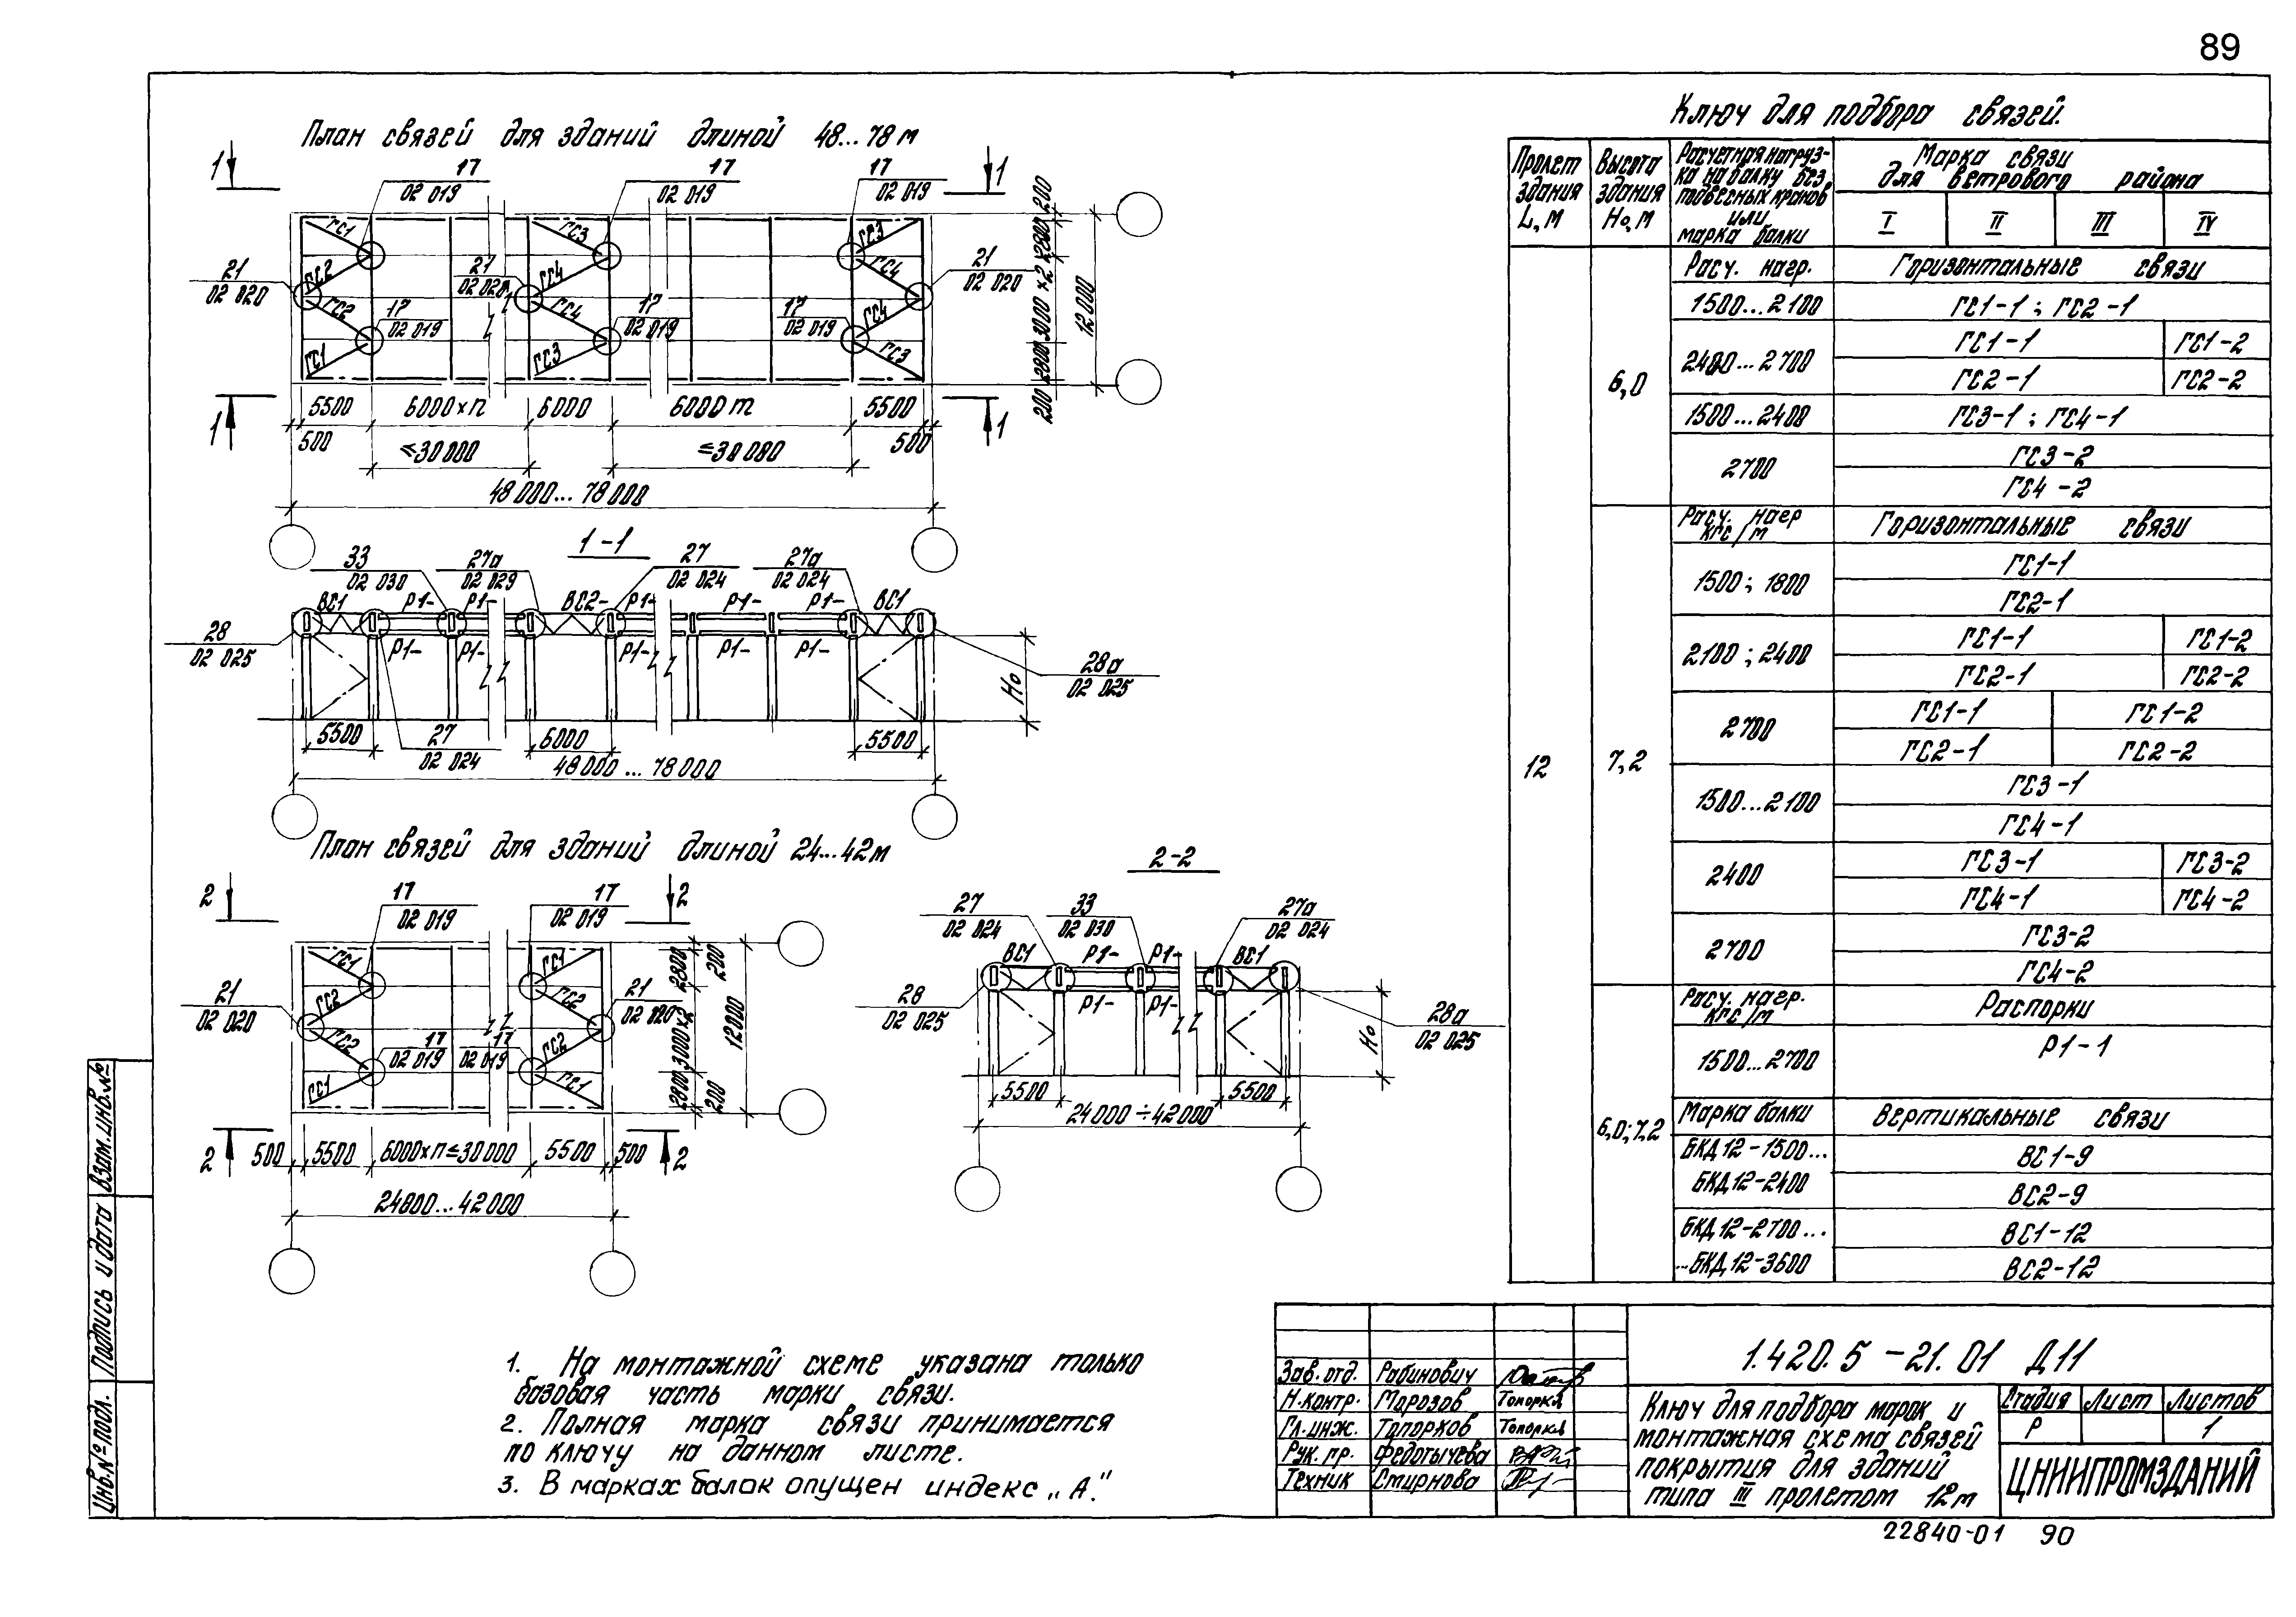 89
План связей для зданий длиной 48...78 м
1 1
17 17 17
02 019 02 019 02 019
ГС1 ГС3 ГС3
21 ГС2 21 ГС4 ГС4 21
02 020 02 020 02 020
ГС2 17 ГС4 17 17 ГС4
02 019 02 019 02 019
ГС1 ГС3 ГС3
200 2800 3000×2 2800 200
12 000
1 5500 6000×п 6000 6000 m 5500 1
500 ≤30 000 ≤30 000 500
48 000... 78 000
1-1
33 27а 27 27а
02 030 02 029 02 024 02 024
ВС1 Р1- Р1- ВС2- Р1- Р1- Р1- ВС1
28
02 025
Р1- Р1- Р1- Р1- Р1-
28а
02 025
Но
5500 27 6000 5500
02 024
48 000 ... 78 000
План связей для зданий длиной 24...42м
2 2
17 17
02 019 02 019
ГС1 ГС1
21 ГС2 ГС2 21
02 020 02 020
ГС2 17 17 ГС2
02 019 02 019
ГС1 ГС1
2800 200
3000×2
12000
2800 200
2 500 5500 6000×п≤30 000 5500 500 2
24 000... 42 000
2-2
27 33 27а
02 024 02 030 02 024
ВС1 Р1- Р1- ВС1
28 Р1- Р1- 28а
02 025 02 025
Но
5500 5500
24 000 ÷ 42 000
Ключ для подбора связей.
Пролет здания L, м
Высота здания Но, м
Расчетная нагруз-
ка на балку без
подвесных кранов
или
марка балки
Марка связи
для ветрового района
I II III IV
12
6,0
Расч. нагр. Горизонтальные связи
1500...2100 ГС1-1 ; ГС2-1
2400...2700 ГС1-1 ГС1-2
ГС2-1 ГС2-2
1500...2400 ГС3-1 ; ГС4-1
2700 ГС3-2
ГС4-2
7,2
Расч. нагр
кгс/м Горизонтальные связи
1500 ; 1800 ГС1-1
ГС2-1
2100 ; 2400 ГС1-1 ГС1-2
ГС2-1 ГС2-2
2700 ГС1-1 ГС1-2
ГС2-1 ГС2-2
1500...2100 ГС3-1
ГС4-1
2400 ГС3-1 ГС3-2
ГС4-1 ГС4-2
2700 ГС3-2
ГС4-2
6,0; 7,2
Расч. нагр.
кгс/м Распорки
1500...2700 Р1-1
Марка балки Вертикальные связи
БКД 12-1500... ВС1-9
БКД 12-2400 ВС2-9
БКД 12-2700... ВС1-12
...БКД 12-3600 ВС2-12
1. На монтажной схеме указана только
базовая часть марки связи.
2. Полная марка связи принимается
по ключу на данном листе.
3. В марках балок опущен индекс „А."
Зав. отд. Рабинович
Н. контр. Морозов Топорка
Гл. инж. Топорков Топорков
Рук. пр. Федотычева
Техник Смирнова
1.420.5-21.01 Д11
Ключ для подбора марок и
монтажная схема связей
покрытия для зданий
типа III пролетом 12м
Стадия Лист Листов
Р 1
ЦНИИПРОМЗДАНИЙ
Инв. № подл. Подпись и дата Взам. инв. №
22840-01 90